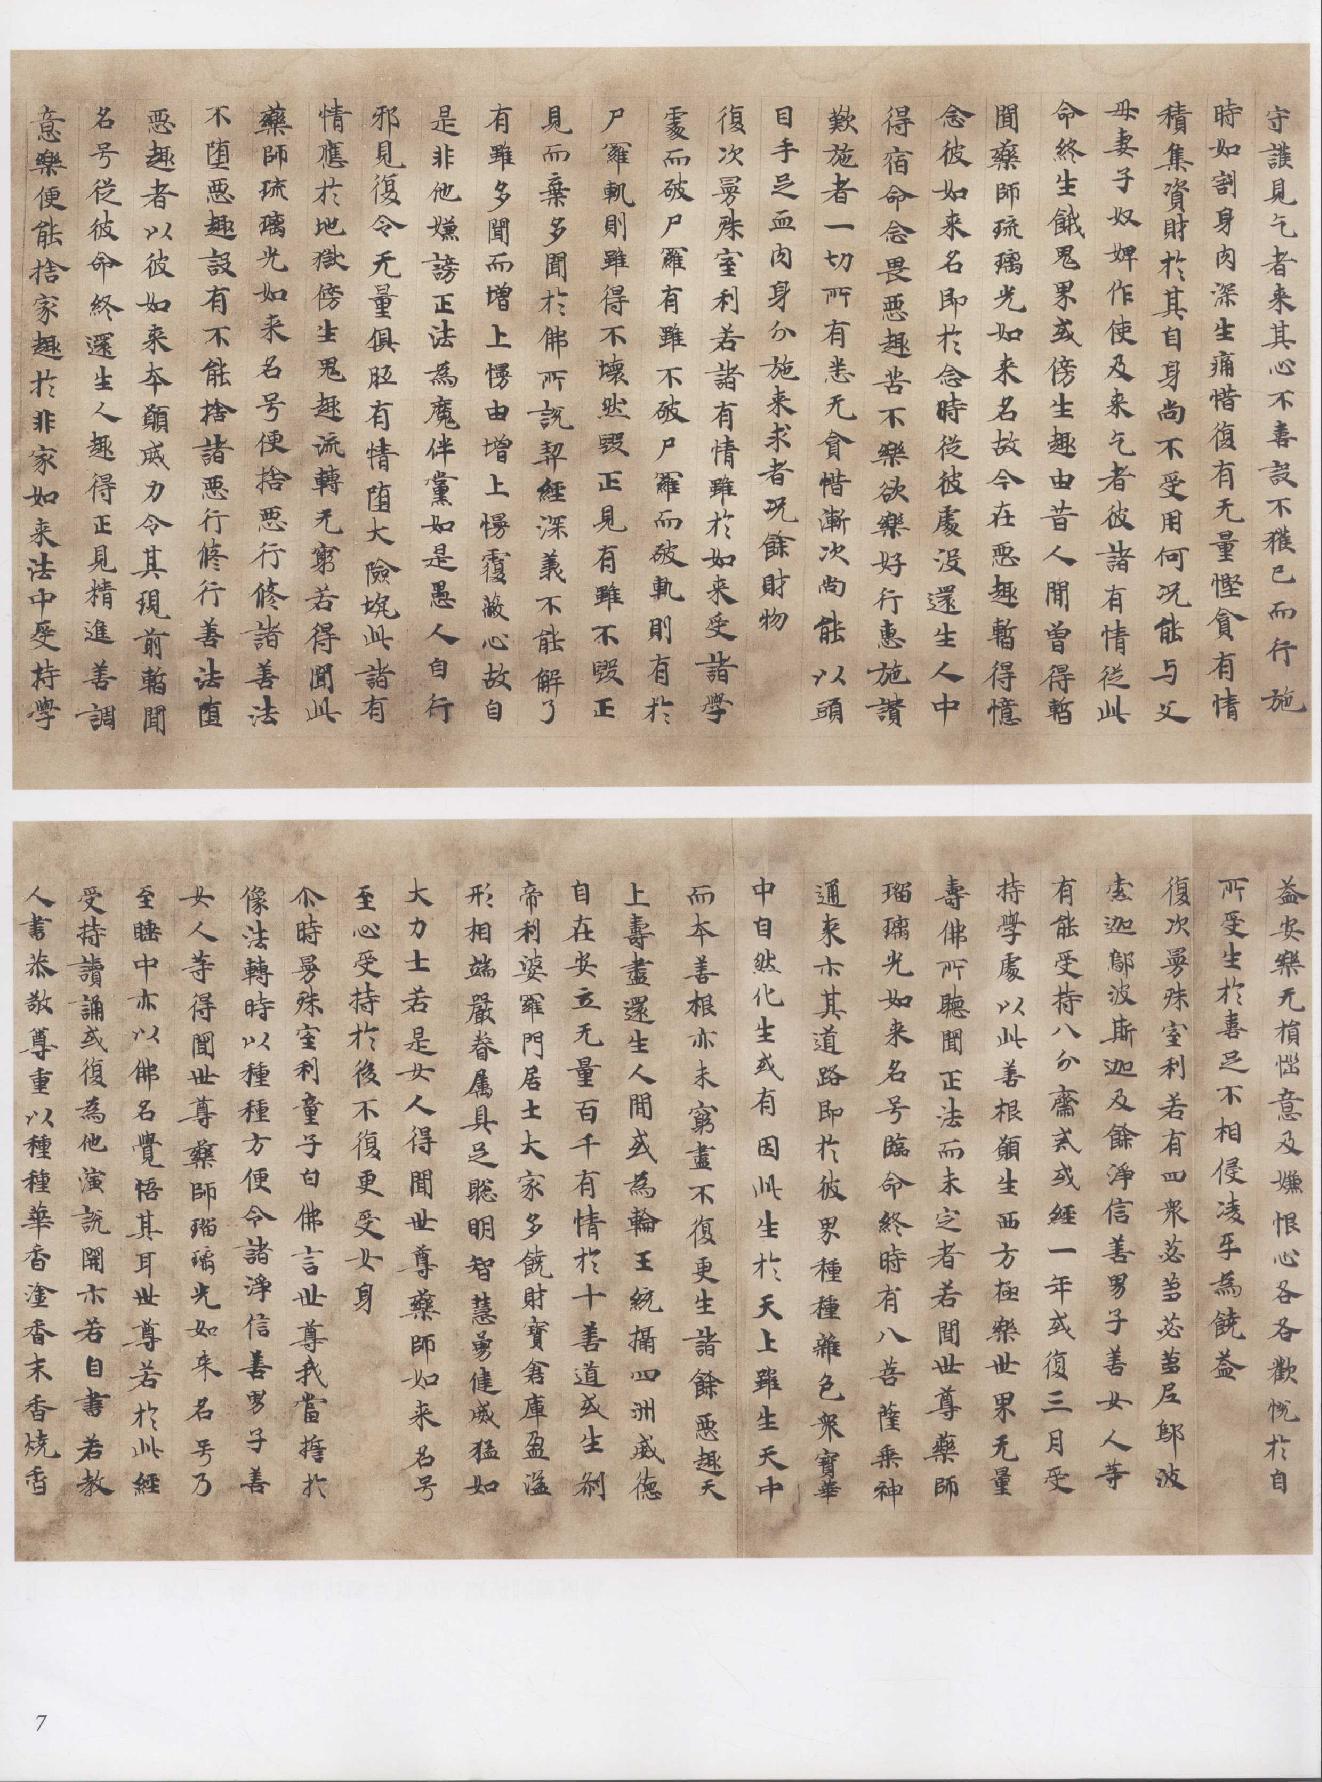 守護見乞者来其心不喜設不獲已而行施
時如割身肉深生痛惜復有无量慳貪有情
積集資財於其自身尚不受用何况能与父
母妻子奴婢作使及来乞者彼諸有情從此
命終生餓鬼界或傍生趣由昔人間曾得暫
聞藥師琉璃光如来名故今在惡趣暫得憶
念彼如来名即於念時從彼處沒還生人中
得宿命念畏惡趣苦不樂欲樂好行惠施讃
歎施者一切所有悉无貪惜漸次尚能以頭
目手足血肉身分施来求者况餘財物
復次曼殊室利若諸有情雖於如来受諸學
處而破尸羅有雖不破尸羅而破軌則有於
尸羅軌則雖得不壞然毀正見有雖不毀正
見而棄多聞於佛所說契經深義不能解了
有雖多聞而增上慢由增上慢覆蔽心故自
是非他嫌謗正法為魔伴黨如是愚人自行
邪見復令无量俱胝有情堕大險坑此諸有
情應於地獄傍生鬼趣流轉无窮若得聞此
藥師琉璃光如来名号便捨惡行修諸善法
不堕惡趣設有不能捨諸惡行修行善法堕
惡趣者以彼如来本願威力令其現前暫聞
名号從彼命終還生人趣得正見精進善調
意樂便能捨家趣於非家如来法中受持學
益安樂无損惱意及嫌恨心各各歡悅於自
所受生於喜足不相侵凌互為饒益
復次曼殊室利若有四衆苾芻苾芻尼鄔波
索迦鄔波斯迦及餘淨信善男子善女人等
有能受持八分齋戒或經一年或復三月受
持學處以此善根願生西方極樂世界无量
壽佛所聽聞正法而未定者若聞世尊藥師
瑠璃光如来名号臨命終時有八菩薩乘神
通来示其道路即於彼界種種雜色衆寶華
中自然化生或有因此生於天上雖生天中
而本善根亦未窮盡不復更生諸餘惡趣天
上壽盡還生人間或為輪王統攝四洲威德
自在安立无量百千有情於十善道或生刹
帝利婆羅門居士大家多饒財寶倉庫盈溢
形相端嚴眷属具足聡明智慧勇健威猛如
大力士若是女人得聞世尊藥師如来名号
至心受持於後不復更受女身
尒時曼殊室利童子白佛言世尊我當誓於
像法轉時以種種方便令諸淨信善男子善
女人等得聞世尊藥師瑠璃光如来名号乃
至睡中亦以佛名覺悟其耳世尊若於此經
受持讀誦或復為他演說開示若自書若教
人書恭敬尊重以種種華香塗香末香燒香
7